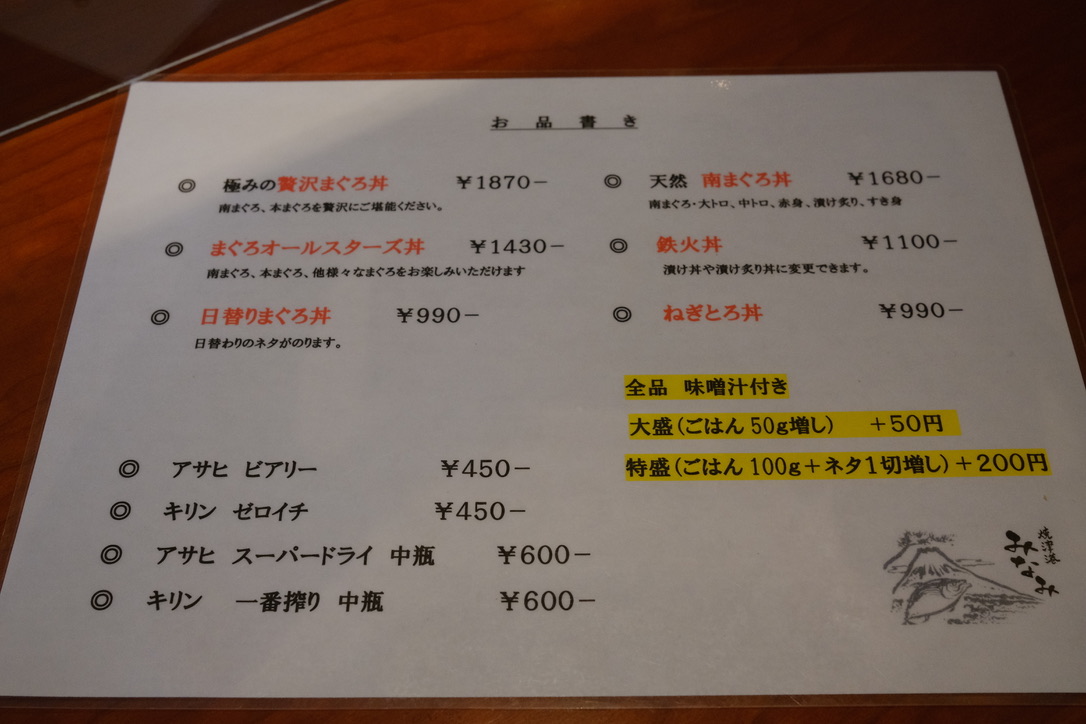 お品書き
◎ 極みの贅沢まぐろ丼 ￥1870−
南まぐろ、本まぐろを贅沢にご堪能ください。
◎ まぐろオールスターズ丼 ￥1430−
南まぐろ、本まぐろ、他様々なまぐろをお楽しみいただけます
◎ 日替りまぐろ丼 ￥990−
日替わりのネタがのります。
◎ 天然 南まぐろ丼 ￥1680−
南まぐろ・大トロ、中トロ、赤身、漬け炙り、すき身
◎ 鉄火丼 ￥1100−
漬け丼や漬け炙り丼に変更できます。
◎ ねぎとろ丼 ￥990−
全品 味噌汁付き
大盛（ごはん50g増し） ＋50円
特盛（ごはん100g＋ネタ1切増し）＋200円
◎ アサヒ ビアリー ￥450−
◎ キリン ゼロイチ ￥450−
◎ アサヒ スーパードライ 中瓶 ￥600−
◎ キリン 一番搾り 中瓶 ￥600−
焼津港
みなみ